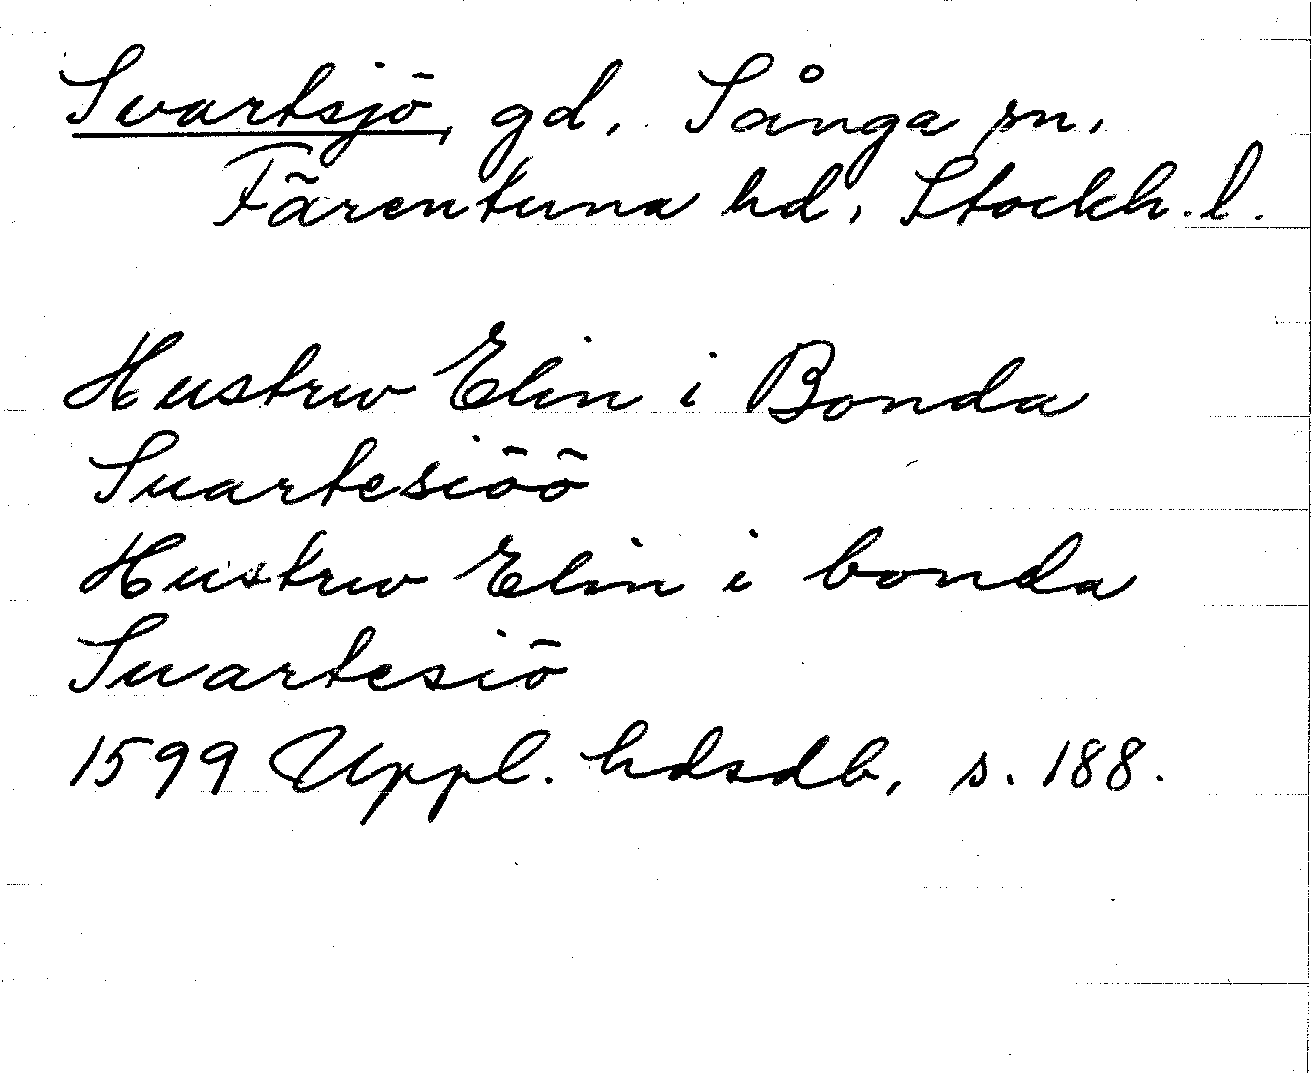 Svartsjö, gd, Sånga sn,
Färentuna hd, Stockh. l.
Hustrw Elin i Bonda
Suartesiöö
Hustrw Elin i bonda
Suartesiö
1599 Uppl. hdsdb, s. 188.